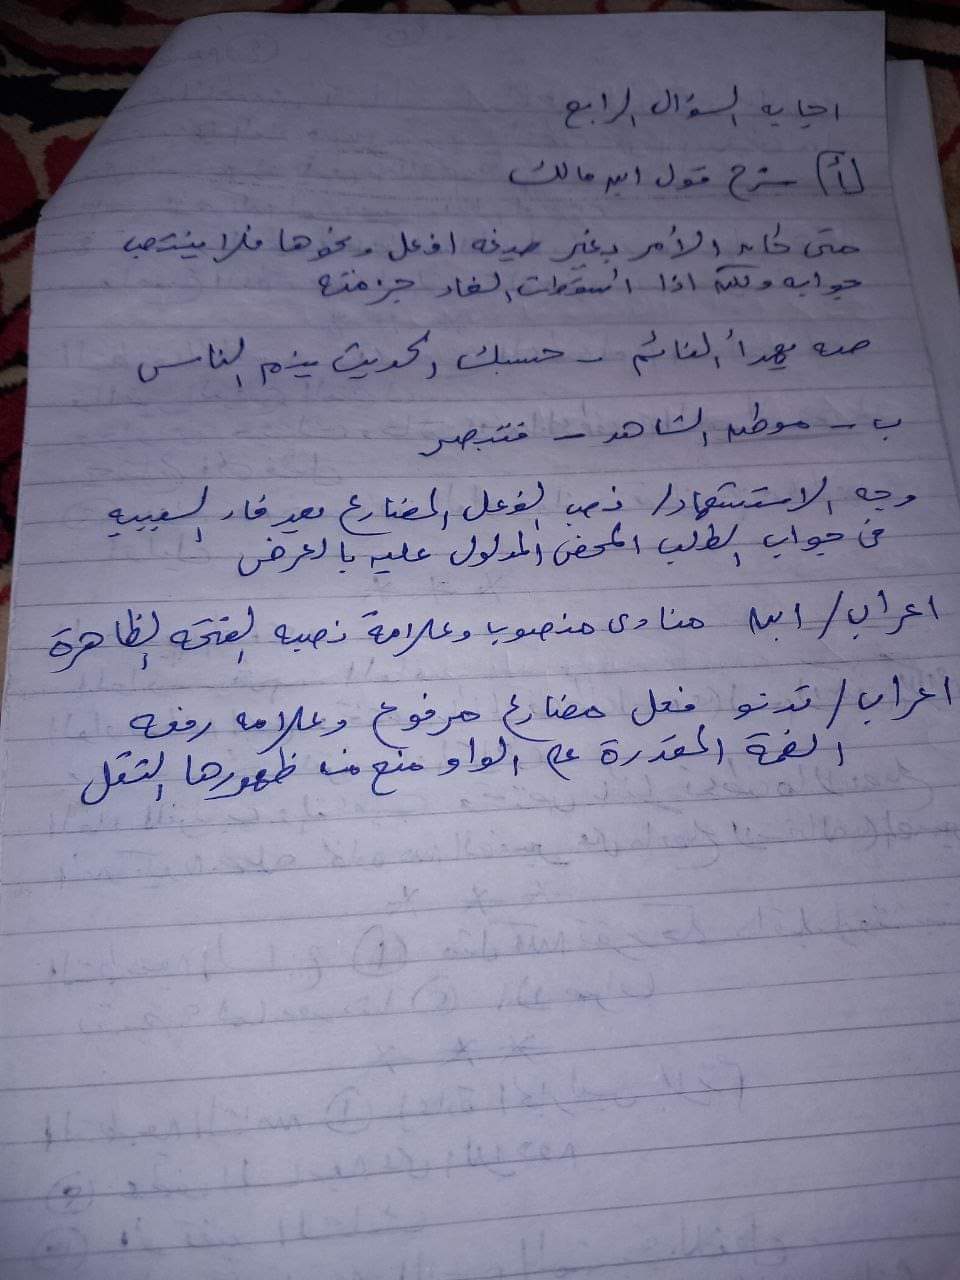 اجابه السؤال الرابع
(أ) شرح قول ابن مالك
متى كان الأمر بغير صيغه افعل ونحوها فلا ينتصب
جوابه ولكن اذا أسقطت الفاء جزمته
صه يهدأ النائم - حسبك الحديث ينم الناس
ب - موطن الشاهد - فتبصر
وجه الاستشهاد/ نصب الفعل المضارع بعد فاء السببيه
فى جواب الطلب المحض المدلول عليه بالعرض
اعراب/ ابن منادى منصوب وعلامة نصبه الفتحه الظاهرة
اعراب/ تدنو فعل مضارع مرفوع وعلامه رفعه
الضمة المقدرة على الواو منع من ظهورها الثقل